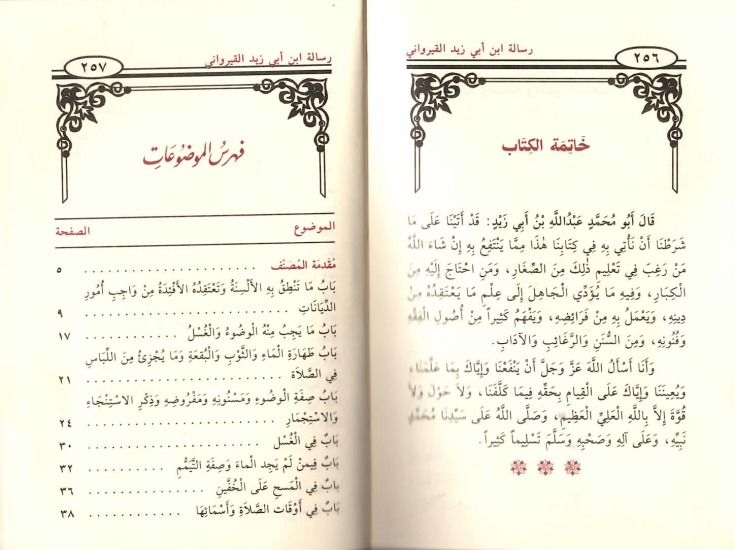 رسالة ابن أبي زيد القيرواني
٢٥٦
خَاتِمَة الكِتَاب
قَالَ أَبُو مُحَمَّدٍ عَبْدُاللَّهِ بْنُ أَبِي زَيْدٍ: قَدْ أَتَيْنَا عَلَى مَا
شَرَطْنَا أَنْ نَأْتِيَ بِهِ فِي كِتَابِنَا هٰذَا مِمَّا يَنْتَفِعُ بِهِ إِنْ شَاءَ اللَّهُ
مَنْ رَغِبَ فِي تَعْلِيمِ ذٰلِكَ مِنَ الصِّغَارِ، وَمَنِ احْتَاجَ إِلَيْهِ مِنَ
الْكِبَارِ، وَفِيهِ مَا يُؤَدِّي الْجَاهِلَ إِلَى عِلْمِ مَا يَعْتَقِدُهُ مِنْ
دِينِهِ، وَيَعْمَلُ بِهِ مِنْ فَرَائِضِهِ، وَيَفْهَمُ كَثِيراً مِنْ أُصُولِ الْفِقْهِ
وَفُنُونِهِ، وَمِنَ السُّنَنِ وَالرَّغَائِبِ وَالآدَابِ.
وَأَنَا أَسْأَلُ اللَّهَ عَزَّ وَجَلَّ أَنْ يَنْفَعَنَا وَإِيَّاكَ بِمَا عَلَّمَنَا،
وَيُعِينَنَا وَإِيَّاكَ عَلَى الْقِيَامِ بِحَقِّهِ فِيمَا كَلَّفَنَا، وَلاَ حَوْلَ وَلاَ
قُوَّةَ إِلاَّ بِاللَّهِ الْعَلِيِّ الْعَظِيمِ، وَصَلَّى اللَّهُ عَلَى سَيِّدِنَا مُحَمَّدٍ
نَبِيِّهِ، وَعَلَى آلِهِ وَصَحْبِهِ وَسَلَّمَ تَسْلِيماً كَثِيراً.
رسالة ابن أبي زيد القيرواني
٢٥٧
فهرس الموضوعات
الموضوع الصفحة
مُقَدمَة المُصنّف . . . . . . . . . . . . ٥
بَابُ مَا تَنْطِقُ بِهِ الأَلْسِنَةُ وَتَعْتَقِدُهُ الأَفْئِدَةُ مِنْ وَاجِبِ أُمُورِ
الدِّيَانَاتِ . . . . . . . . . . . . ٩
بَابُ مَا يَجِبُ مِنْهُ الْوُضُوءُ وَالْغُسْلُ . . . . . . . . . . . . ١٧
بَابُ طَهَارَةِ الْمَاءِ وَالثَّوْبِ وَالْبُقْعَةِ وَمَا يُجْزِئُ مِنَ اللِّبَاسِ
فِي الصَّلاَةِ . . . . . . . . . . . . ٢١
بَابُ صِفَةِ الْوُضُوءِ وَمَسْنُونِهِ وَمَفْرُوضِهِ وَذِكْرِ الاِسْتِنْجَاءِ
وَالاِسْتِجْمَارِ . . . . . . . . . . . . ٢٤
بَابٌ فِي الْغُسْلِ . . . . . . . . . . . . ٣٠
بَابٌ فِيمَنْ لَمْ يَجِدِ الْمَاءَ وَصِفَةِ التَّيَمُّمِ . . . . . . . . . . . . ٣٢
بَابٌ فِي الْمَسْحِ عَلَى الْخُفَّيْنِ . . . . . . . . . . . . ٣٦
بَابٌ فِي أَوْقَاتِ الصَّلاَةِ وَأَسْمَائِهَا . . . . . . . . . . . . ٣٨